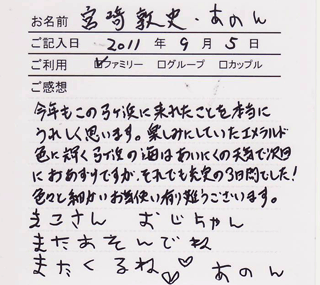 お名前 宮崎敦史・あのん
ご記入日 2011 年 9 月 5 日
ご利用 ☑ファミリー □グループ □カップル
ご感想
今年もこの弓ヶ浜に来れたことを本当に
うれしく思います。楽しみにしていたエメラルド
色に輝く弓ヶ浜の海はあいにくの天気で次回
におあずけですが、それでも充実の3日間でした!
色々と細かいお気使い有り難うございます。
まこさん おじちゃん
またあそんでね
またくるね♡♡ あのん